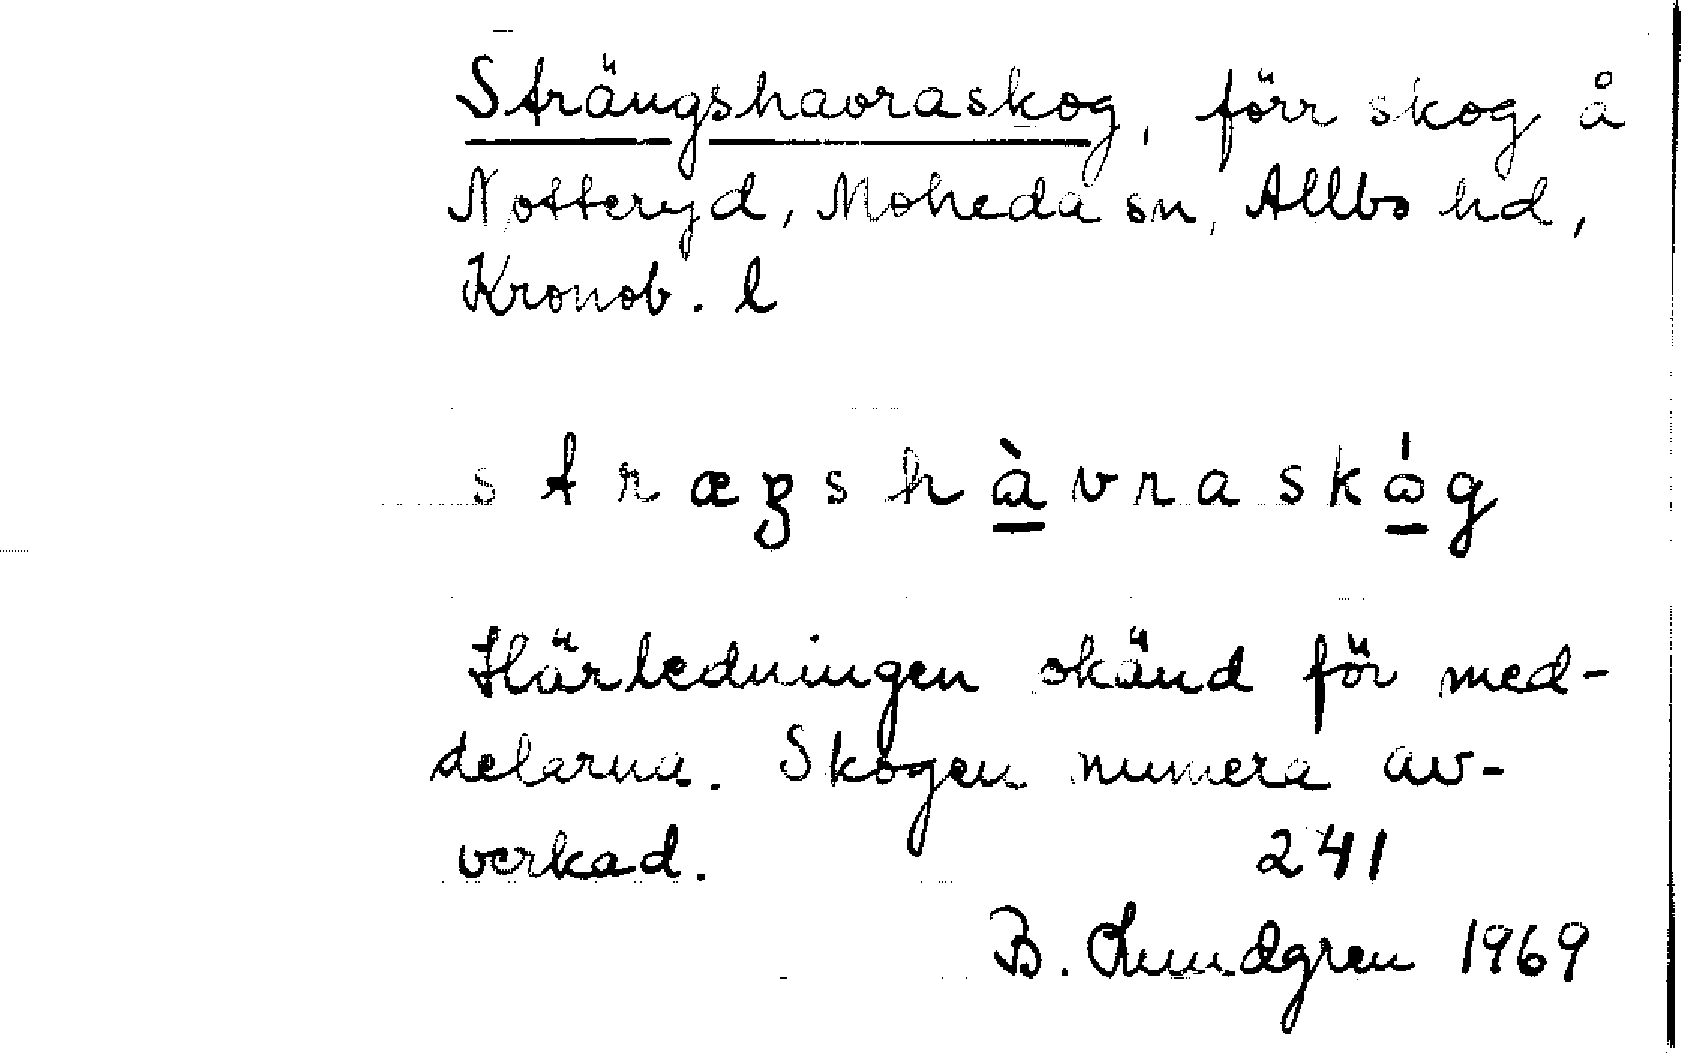 Strängshavraskog, förr skog å
Notteryd, Moheda sn, Allbo hd,
Kronob. l
stræŋshàvraskóg
Härledningen okänd för med-
delarna. Skogen numera av-
verkad. 241
B. Lundgren 1969